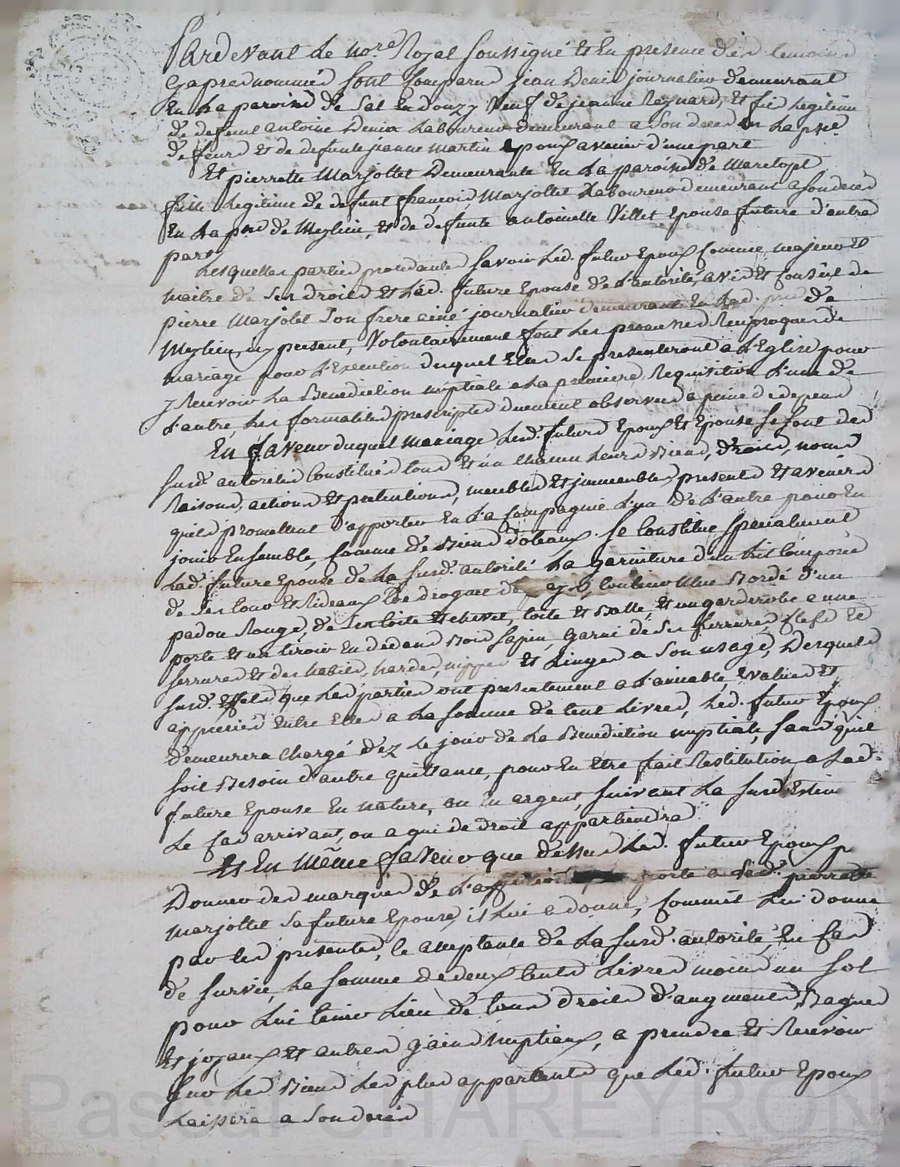 Pardevant Le nore Royal soussigné et en presence des temoins
Cy apres nommés sont Comparus jean Denis journalier demeurant
En La paroisse de Sal En donzy Veuf de jeanne Reynard, et fils Legitime
de defunt antoine Denis Laboureur demeurant a son deces en La psse
de feurs et de defunte jeanne Martin Epoux avenir d'une part
Et pierrette Marjollet Demeurante En La paroisse de Marclopt
fille Legitime de defunt françois Marjollet Laboureur demeurant a son deces
En La psse de Meylieu, et de defunte antoinette Villet Epouse future d'autre
part
Lesquelles parties procedantes savoir Led. futur Epoux Comme majeur et
maitre de ses droits et Lad. future Epouse de L'autorité, avis et Conseil de
pierre Marjolet son frere ainé journalier demeurant En Lad. psse de
Meylieu, cy present, Volontairement font Les promesses Reciproques de
mariage pour L'Execution duquel Elles se presenteront a L'Eglise pour
y Recevoir La Benediction nuptiale a La premiere Requisition L'une de
L'autre Les formalités prescriptes dument observées a peine de depens
En faveur duquel mariage Lesd. futurs Epoux et Epouse se sont des
susd. autorités Constitués tous et un Chacun Leurs Biens, droits, noms
Raisons, actions et pretentions, meubles et jmmeubles presents et avenirs
qu'ils promettent d'apporter En La Compagnie L'un de L'autre pour En
jouir Ensemble, Comme de Biens dotaux. se Constitue specialement
Lad. future Epouse de La susd. autorité La garniture d'un Lit Composé
de ses tour et Rideaux de couleur bleue Bordé d'un
padou Rouge, de ses toite et chevet, toite et Balle, et un garderobe a une
porte et un tiroir En dedans Bois sapin, garni de ses ferrures clefs et
serrures et des habits, hardes, nippes et Linges a son usage, Desquels
susd. Effets que Les parties ont presentement a L'amiable Evalués et
appreciés Entre Elles a La somme de Cent Livres, Led. futur Epoux
demeurera Chargé dez Le jour de La Benediction nuptiale, sans qu'il
soit Besoin d'autre quittance, pour En Etre fait Restitution a Lad.
future Epouse En nature, ou En argent, suivant La susd. Estim
Le Cas arrivant, ou a qui de droit appartiendra.
Et En Même faveur que dessus Led. futur Epoux p
Donner des marques de L'affection porte a Lad. pierrette
Marjollet sa future Epouse, il Lui a donné, Comme il Lui donne
par Les presentes, Le acceptante de La susd. autorité, En Cas
de survie, La somme de deux Cents Livres moins un sol
pour Lui tenir Lieu de tous droits d'augment, Bagues
et joyaux et autres gains Nuptiaux, a prendre et Recevoir
sur Les Biens Les plus apparents que Led. futur Epoux
Laissera a son deces
Pascal CHAREYRON